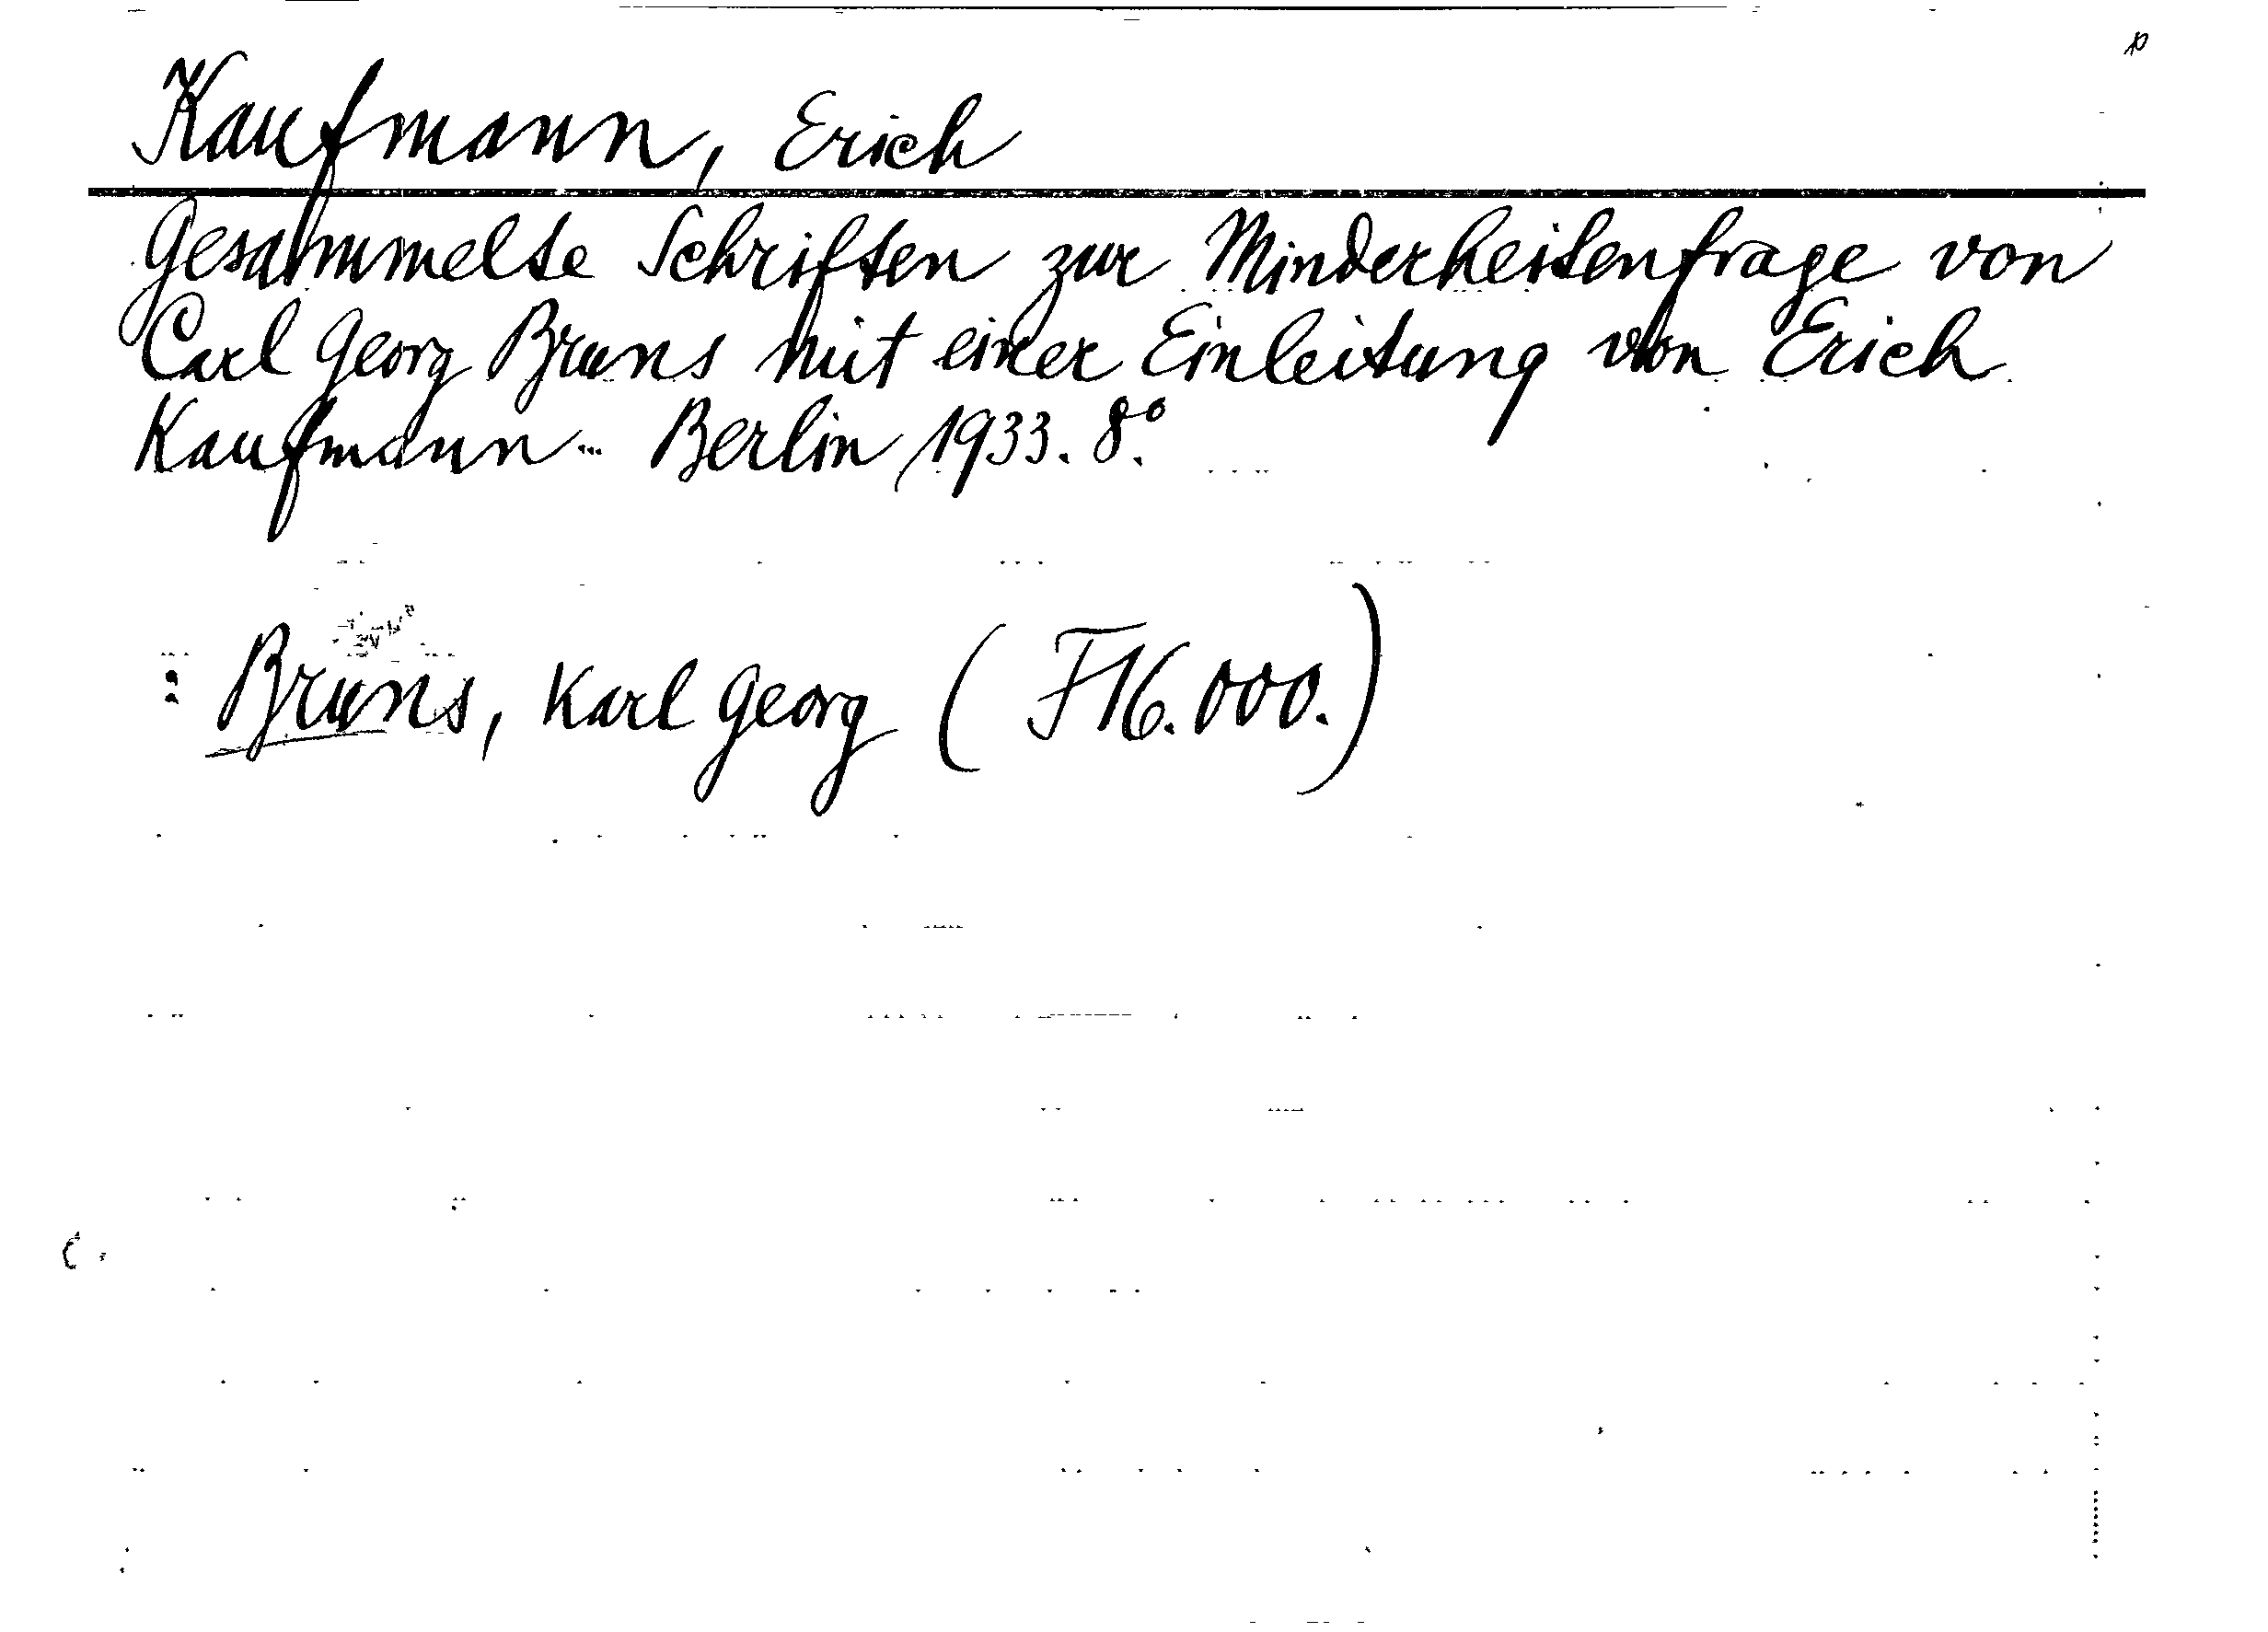 Kaufmann, Erich
Gesammelte Schriften zur Minderheitenfrage von
Carl Georg Bruns mit einer Einleitung von Erich
Kaufmann. Berlin 1933. 8°.
: Bruns, Karl Georg (F16.000.)